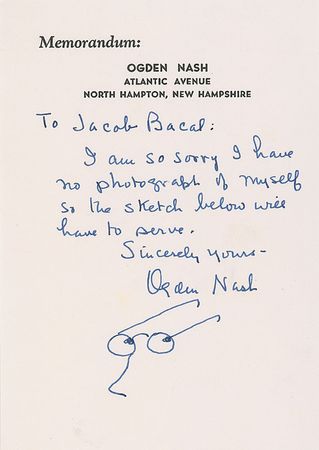 Memorandum:
OGDEN NASH
ATLANTIC AVENUE
NORTH HAMPTON, NEW HAMPSHIRE
To Jacob Bacal:
I am so sorry I have
no photograph of myself
so the sketch below will
have to serve.
Sincerely yours-
Ogden Nash